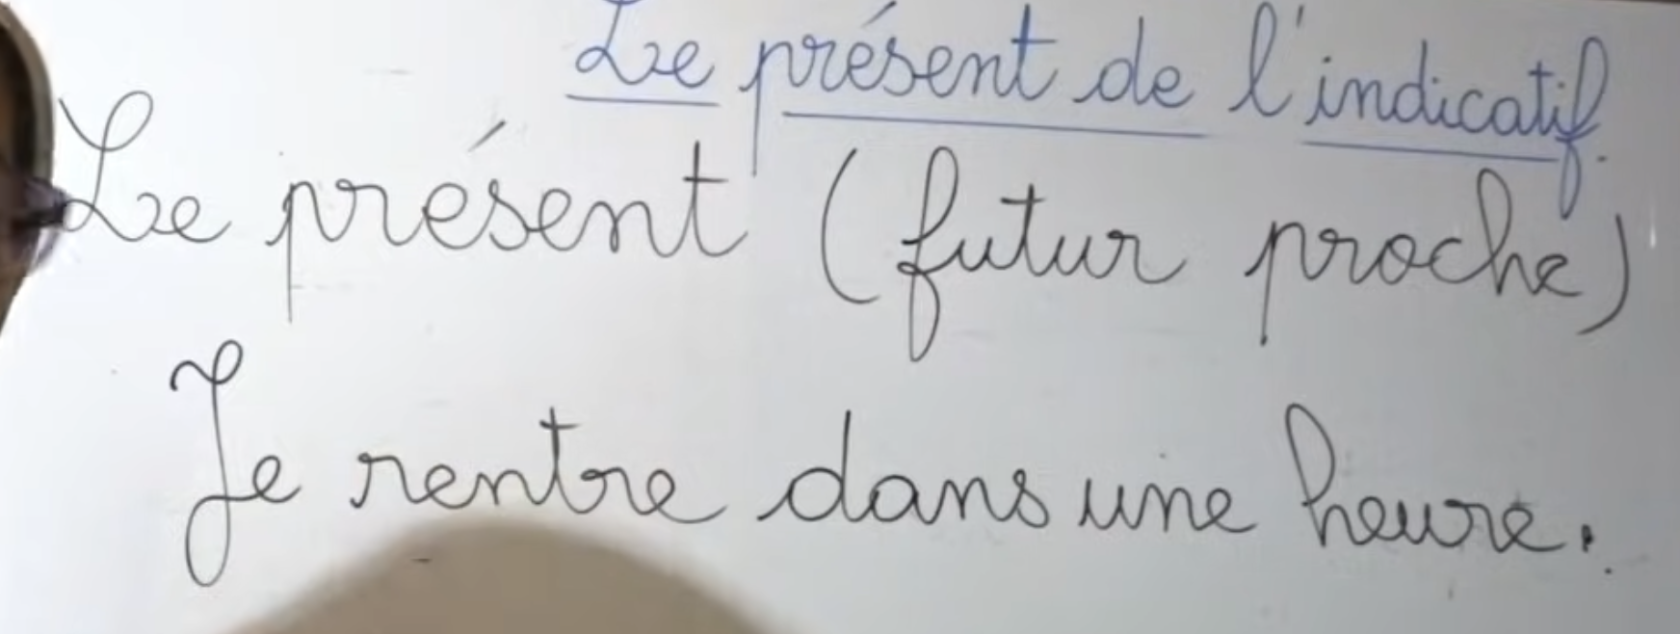 Le présent de l'indicatif.
Le présent (futur proche)
Je rentre dans une heure.